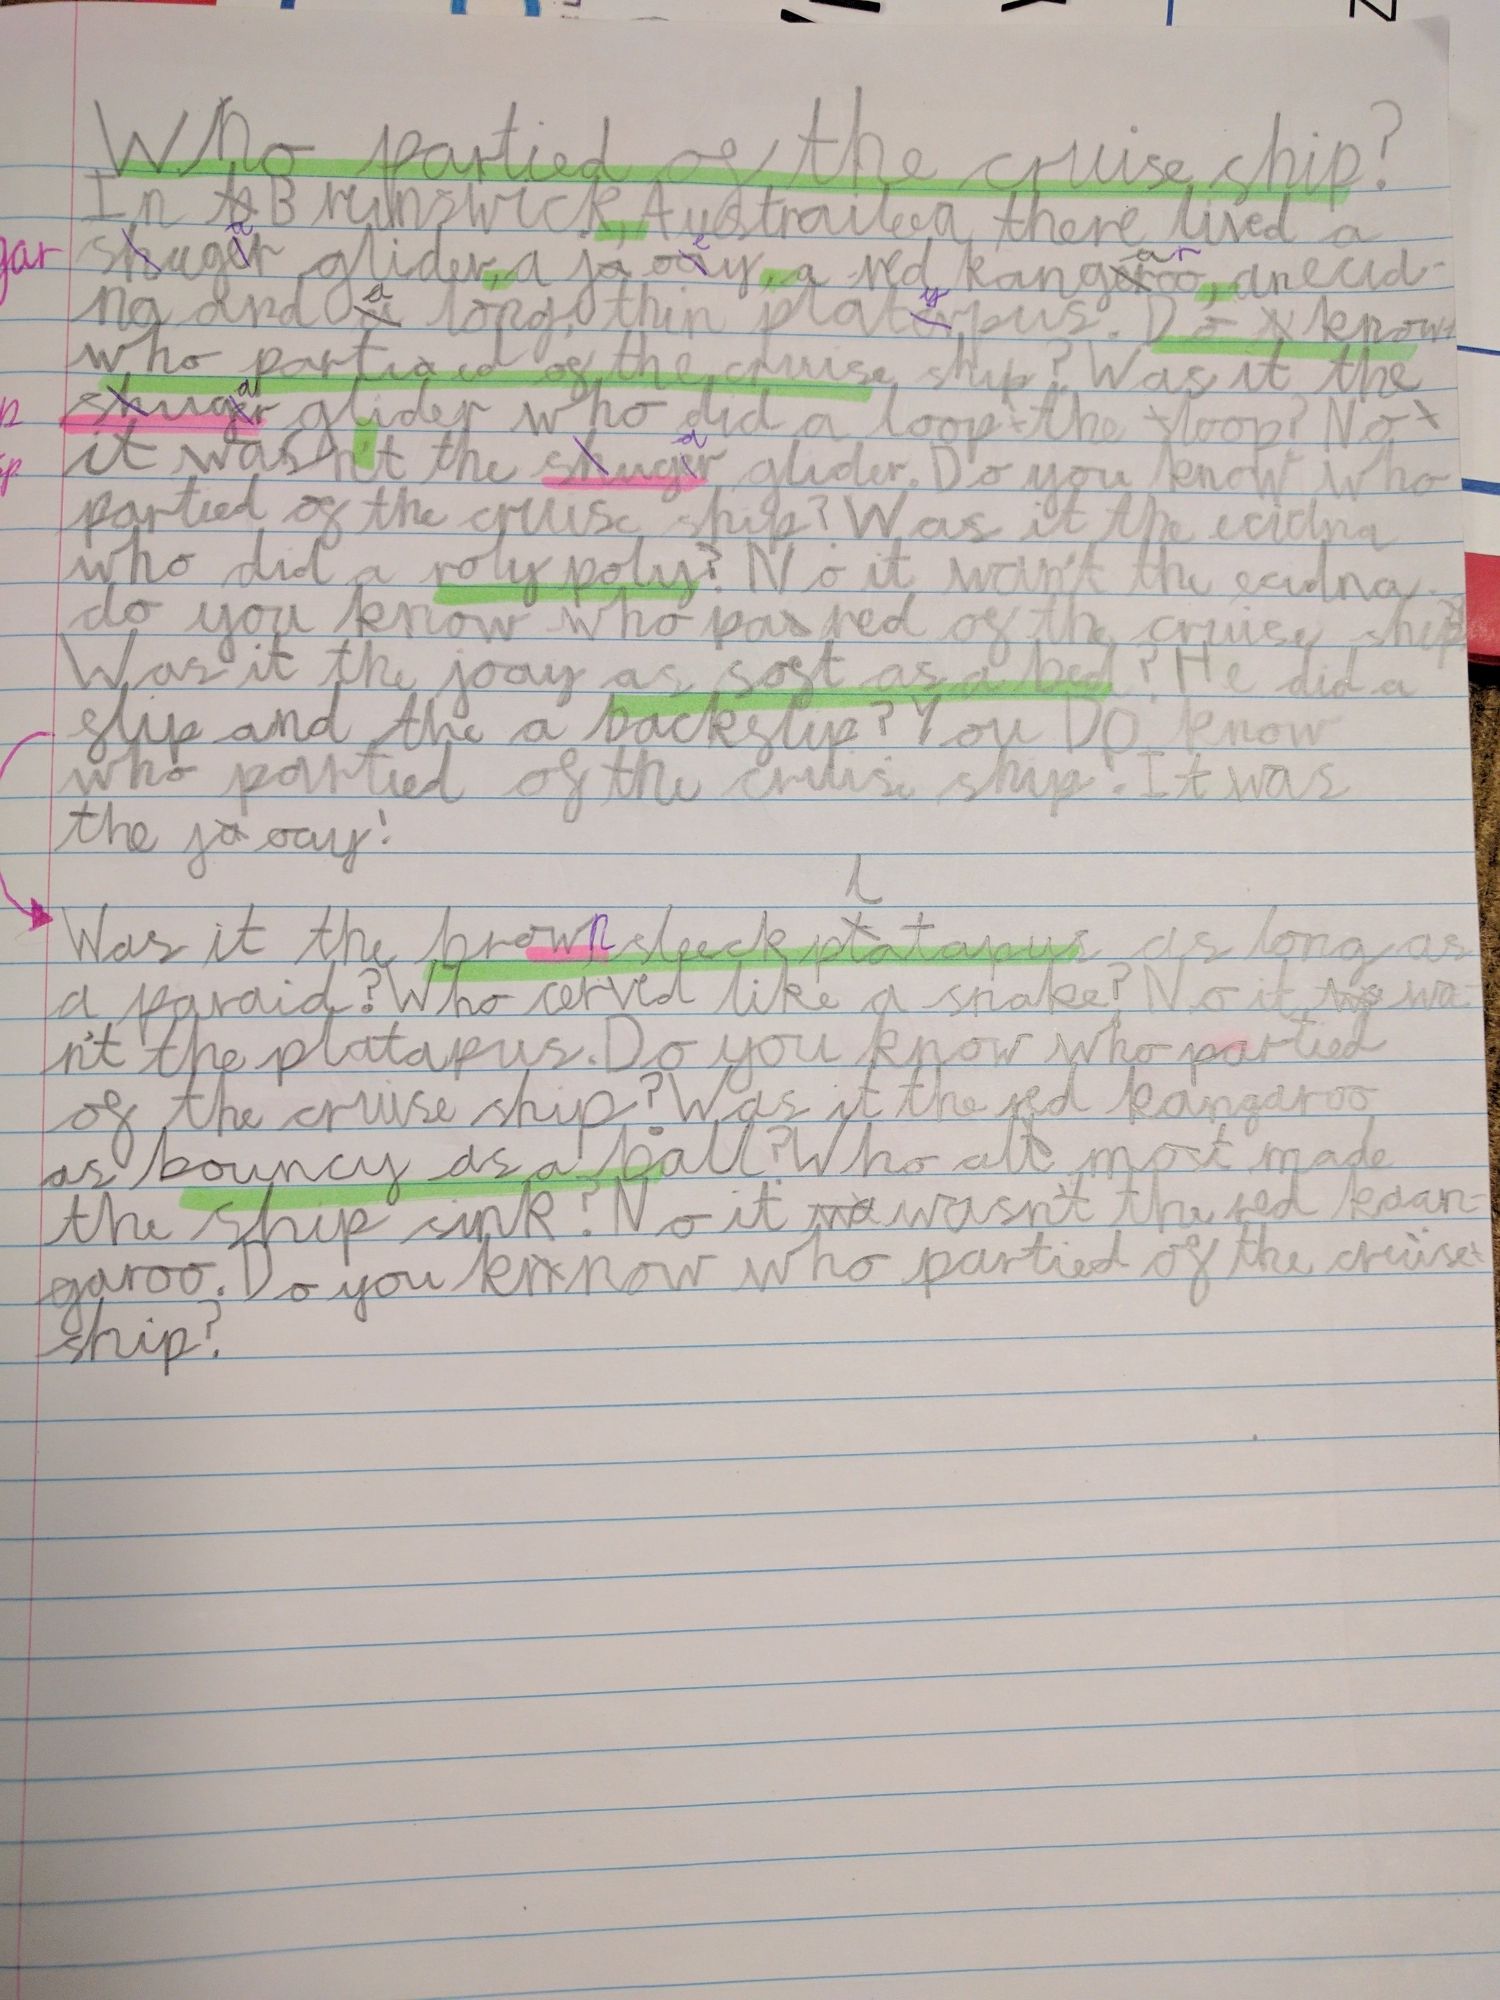 Who partied of the cruise ship?
In Brunswick, Austrailea there lived a
gar sugar glider, a joey, a red kangaroo, an ecid-
na and a long, thin platypus. Do know
who partied of the cruise ship? Was it the
sugar glider who did a loop-the-loop? No
it wasn't the sugar glider. Do you know who
sp
partied of the cruise ship? Was it the ecidna
who did a roly poly? No it wasn't the ecidna.
do you know who pared of the cruise ship?
Was it the joay as soft as a bed? He did a
flip and the a backflip? You Do know
who partied of the cruise ship! It was
the joay!
Was it the brown sleeck platapus as long as
a paraid? Who cerved like a snake? No it wa-
n't the platapus. Do you know who partied
of the cruise ship? Was it the red kangaroo
as bouncy as a ball? Who all most made
the ship sink? No it wasn't the red kaan-
garoo. Do you know who partied of the cruise
ship?